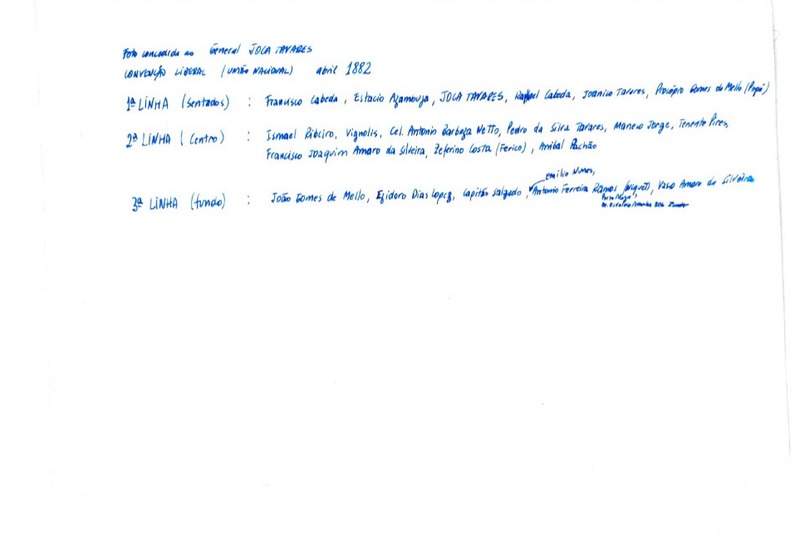 Foto concedida ao General JOCA TAVARES
CONVENÇÃO LIBERAL (UNIÃO NACIONAL) abril 1882
1ª LINHA (sentados) : Francisco Cabeda, Estacio Azambuja, JOCA TAVARES, Raffael Cabeda, Joanico Tavares, Procópio Gomes de Mello (Popó)
2ª LINHA (Centro) : Ismael Ribeiro, Vignolis, Cel. Antonio Barboza Netto, Pedro da Silva Tavares, Maneco Jorge, Tenente Pires,
Francisco Joaquim Amaro da Silveira, Zeferino Costa (Ferico), Anibal Pachão
Emilio Nunes,
3ª LINHA (fundo) : João Gomes de Mello, Ezidoro Dias Lopez, Capitão Salgado, Antonio Ferreira Ramos, Vasco Amaro da Silveira